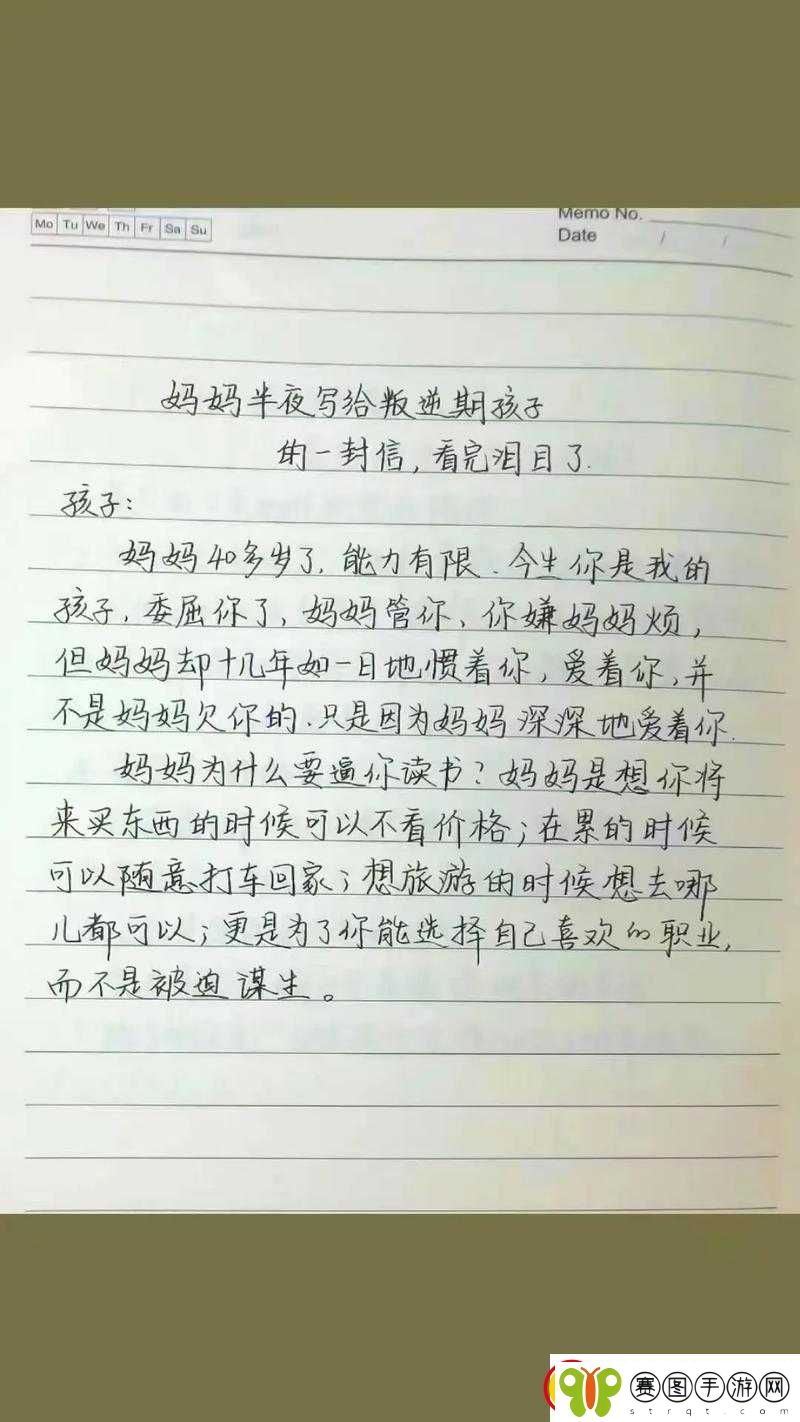 Mo Tu We Th Fr Sa Su
Memo No.
Date / /
妈妈半夜写给叛逆期孩子
的一封信，看完泪目了.
孩子：
妈妈40多岁了，能力有限．今生你是我的
孩子，委屈你了，妈妈管你，你嫌妈妈烦，
但妈妈却十几年如一日地惯着你，爱着你，并
不是妈妈欠你的．只是因为妈妈深深地爱着你．
妈妈为什么要逼你读书？妈妈是想你将
来买东西的时候可以不看价格；在累的时候
可以随意打车回家；想旅游的时候想去哪
儿都可以；更是为了你能选择自己喜欢的职业，
而不是被迫谋生。
赛图手游网
strqt.com